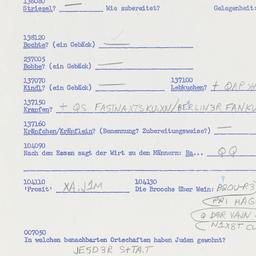 138080
Striesel? — Wie zubereitet? Gelegenheit:
138120
Bochts? (ein Gebäck) —
237005
Bobbe? (ein Gebäck) —
137070 137100
Kindl? (ein Gebäck) — Lebkuchen? +
137150
Krapfen? + QS FASTNAXTSKUXN/BERLIN3R FANKU
137160
Kräpfchen/Kräpflein? (Benennung? Zubereitungsweise?) —
104090
Nach dem Essen sagt der Wirt zu den Männern: Ha... QQ
104110 104130
'Prosit' XA.J1M Die Broochs über Wein:
QDER VAJN
007050
In welchen benachbarten Ortschaften haben Juden gewohnt?
JE5D3R STAT